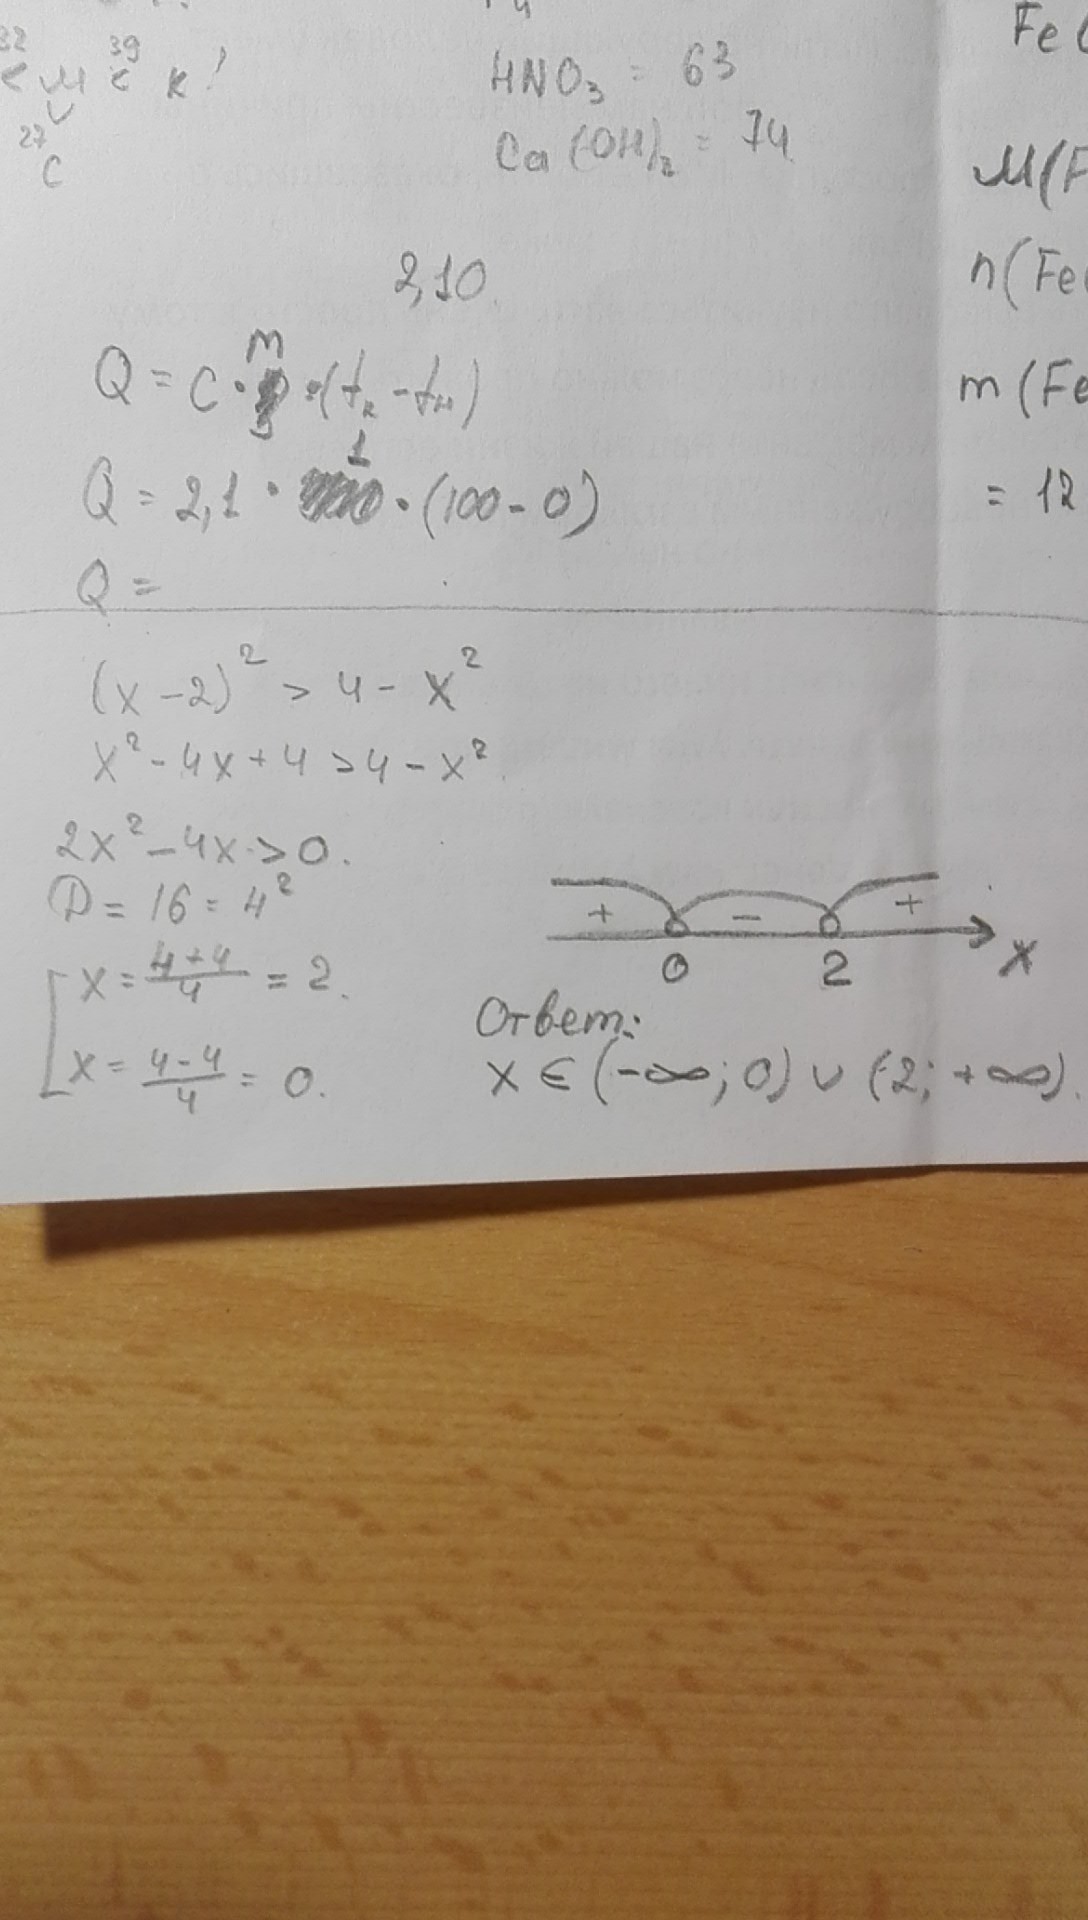 32 39
с м с к!
27
с
HNO₃ = 63
Ca(OH)₂ = 74
Fe(
M(F
n(Fe(
m(Fe
= 12
2,10
Q = c · m · (tк - tн)
Q = 2,1 · 1 · (100 - 0)
Q =
(x - 2)² > 4 - x²
x² - 4x + 4 > 4 - x²
2x² - 4x > 0.
D = 16 = 4²
x = (4+4)/4 = 2.
x = (4-4)/4 = 0.
+ - +
0 2 x
Ответ:
x ∈ (-∞; 0) ∪ (2; +∞).